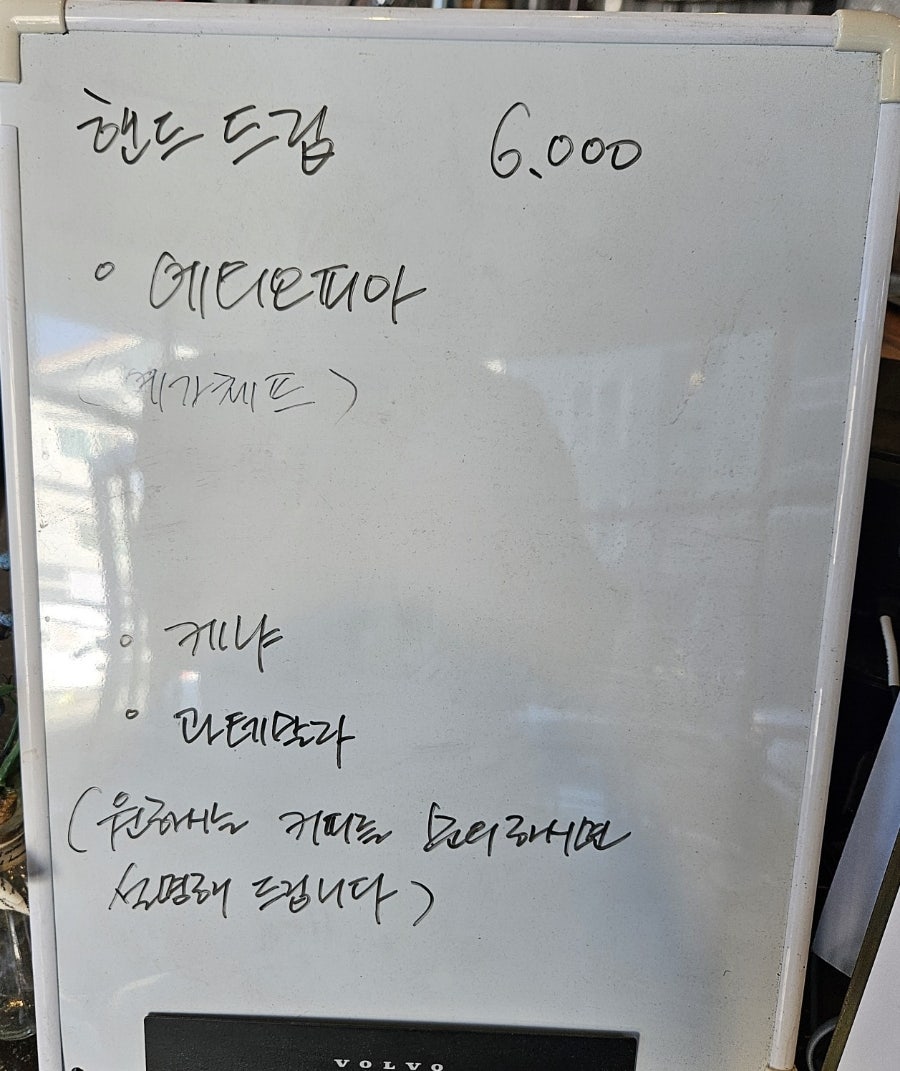 핸드 드립 6.000
° 에티오피아
(예가체프)
° 케냐
° 과테말라
(원하시는 커피를 문의하시면
설명해 드립니다)
VOLVO